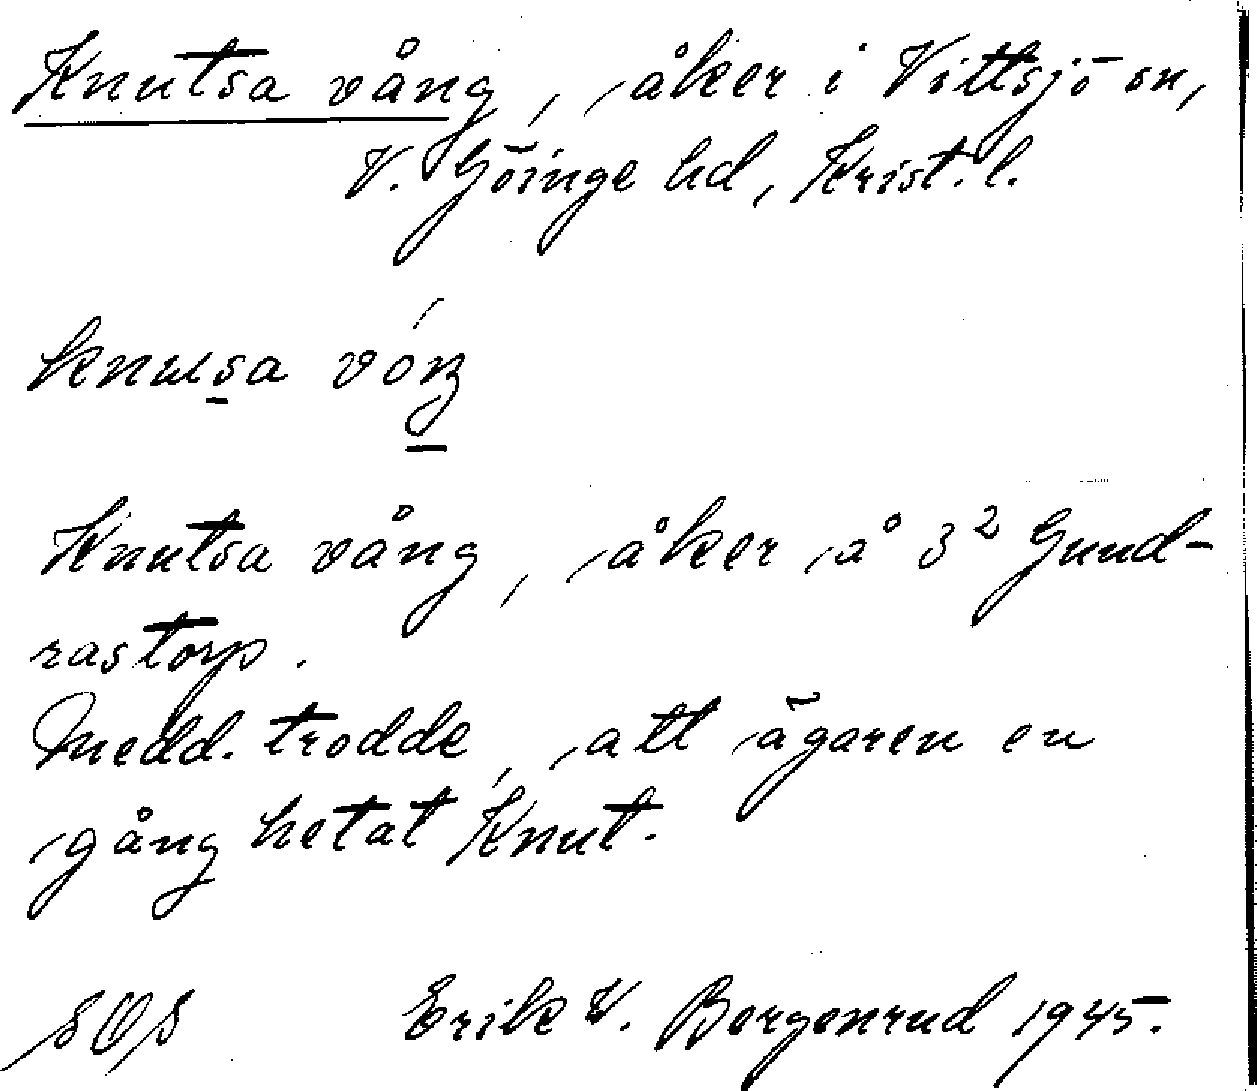 Knutsa vång, åker i Vittsjö sn,
V. Göinge hd, Krist. l.
knusa vóŋ
Knutsa vång, åker å 3² Gund-
rastorp.
Medd. trodde, att ägaren en
gång hetat Knut.
SOS Erik V. Borgenrud 1945.